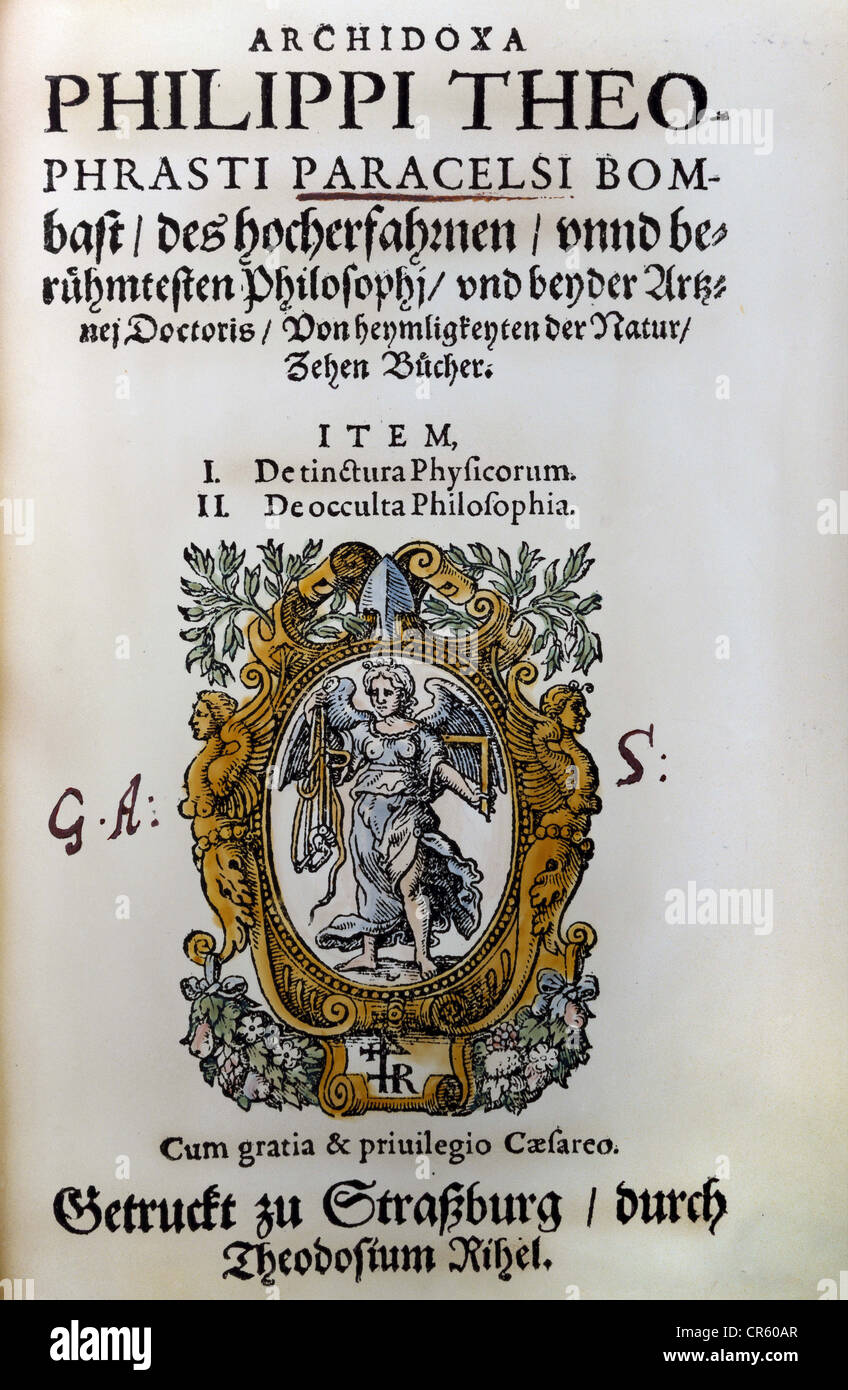 ARCHIDOXA
PHILIPPI THEO-
PHRASTI PARACELSI BOM-
baſt / des hocherfahrnen / vnnd be-
ruͤhmteſten Philoſophj / vnd beyder Artz-
nej Doctoris / Von heymligkeyten der Natur /
Zehen Buͤcher.
ITEM,
I. De tinctura Phyſicorum.
II. De occulta Philoſophia.
G. A: S:
TR
Cum gratia & priuilegio Cæſareo.
Getruckt zu Straßburg / durch
Theodoſium Rihel.
alamy
Image ID: CR60AR
www.alamy.com